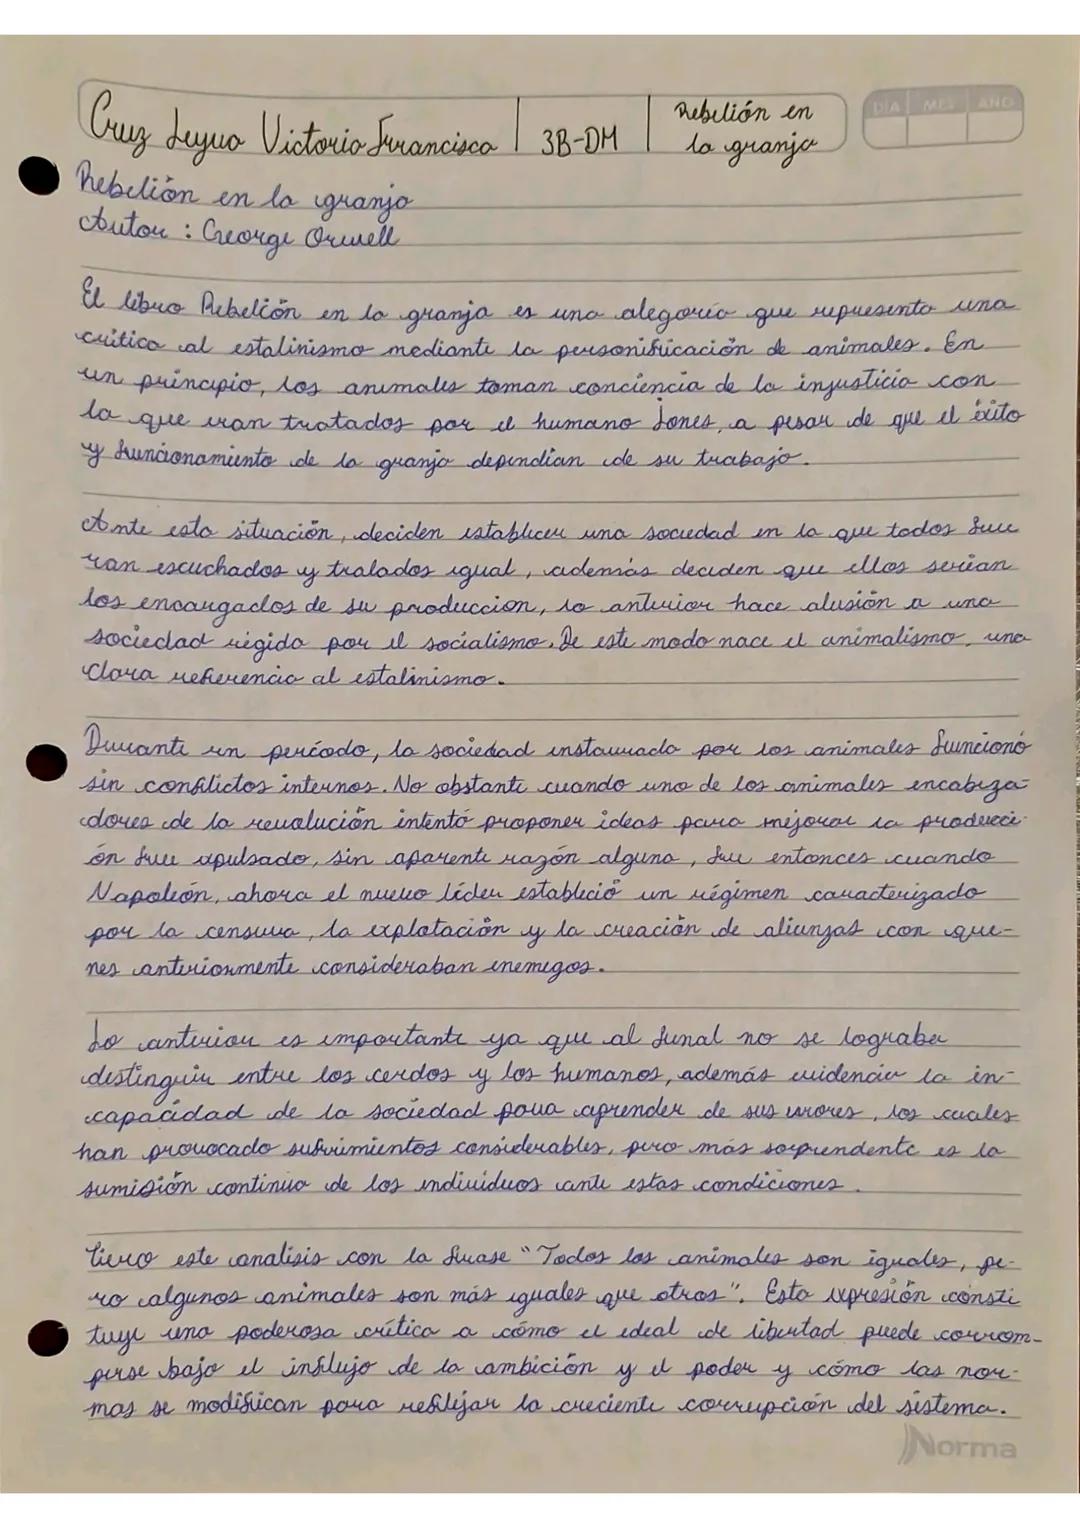 Cruz Leyva Victoria Francisca | 3B-DM | Rebelión en
la granja
DIA MES AÑO
Rebelión en la granja
Autor : George Orwell
El libro Rebelión en la granja es una alegoría que representa una
critica al estalinismo mediante la personificación de animales. En
un principio, los animales toman conciencia de la injusticia con
la que eran tratados por el humano Jones, a pesar de que el éxito
y funcionamiento de la granja dependían de su trabajo.
Ante esta situación, deciden establecer una sociedad en la que todos fue
ran escuchados y tratados igual, además deciden que ellos serían
los encargados de su produccion, lo anterior hace alusión a una
sociedad regida por el socialismo. De este modo nace el animalismo, una
clara referencia al estalinismo.
Durante un período, la sociedad instaurada por los animales funcionó
sin conflictos internos. No obstante cuando uno de los animales encabeza-
dores de la revolución intentó proponer ideas para mejorar la producci-
ón fue expulsado, sin aparente razón alguna, fue entonces cuando
Napoleón, ahora el nuevo líder estableció un régimen caracterizado
por la censura, la explotación y la creación de alianzas con quie-
nes anteriormente consideraban enemigos.
Lo anterior es importante ya que al final no se lograba
destinguir entre los cerdos y los humanos, además evidencia la in-
capacidad de la sociedad para aprender de sus errores, los cuales
han provocado sufrimientos considerables, pero más sorprendente es la
sumisión continua de los individuos ante estas condiciones.
Cierro este analisis con la frase "Todos los animales son iguales, pe-
ro algunos animales son más iguales que otros". Esta expresión consti
tuye una poderosa crítica a cómo el ideal de libertad puede corrom-
perse bajo el influjo de la ambición y el poder y cómo las nor-
mas se modifican para reflejar la creciente corrupción del sistema.
Norma